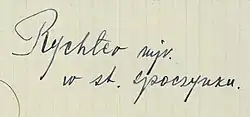 Rychter mjr.
w st. spoczynku.